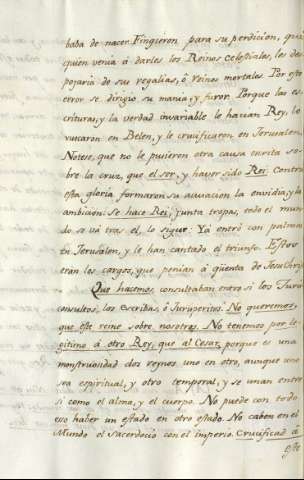 baba de nacer. Fingieron para su perdicion, que
quien venia à darles los Reinos Celestiales, les des
pojaria de sus regalias, ò Reinos mortales. Por este
error se dirigio su mania, y furor. Porque las es
crituras, y la verdad invariable le hacian Rey, lo
buscaron en Belen, y le crucificaron en Jerusalen.
Notese, que no le pusieron otra causa escrita so
bre la cruz, que el ser, y haver sido Rei: Contra
esta gloria formaron su acusacion la envidia, y la
ambicion. Se hace Rei, junta tropas, todo el mun
do se và tras el, lo sigue. Yà entrò con palmas
en Jerusalen, y le han cantado el triunfo. Estos
eran los cargos, que ponian à qüenta de JesuChris
Què hacemos, consultaban entre si los Juris
consultos, los Escribas, ò Jurisperitos. No queremos,
que este reine sobre nosotros. No tenemos por le
gitimo à otro Rey, que al Cesar, porque es una
monstruosidad dos reynos uno en otro, aunque uno
sea espiritual, y otro temporal, y se unan entre
si como el alma, y el cuerpo. No puede con todo
eso haber un estado en otro estado. No caben en el
Mundo el sacerdocio con el imperio. Crucificad à
este